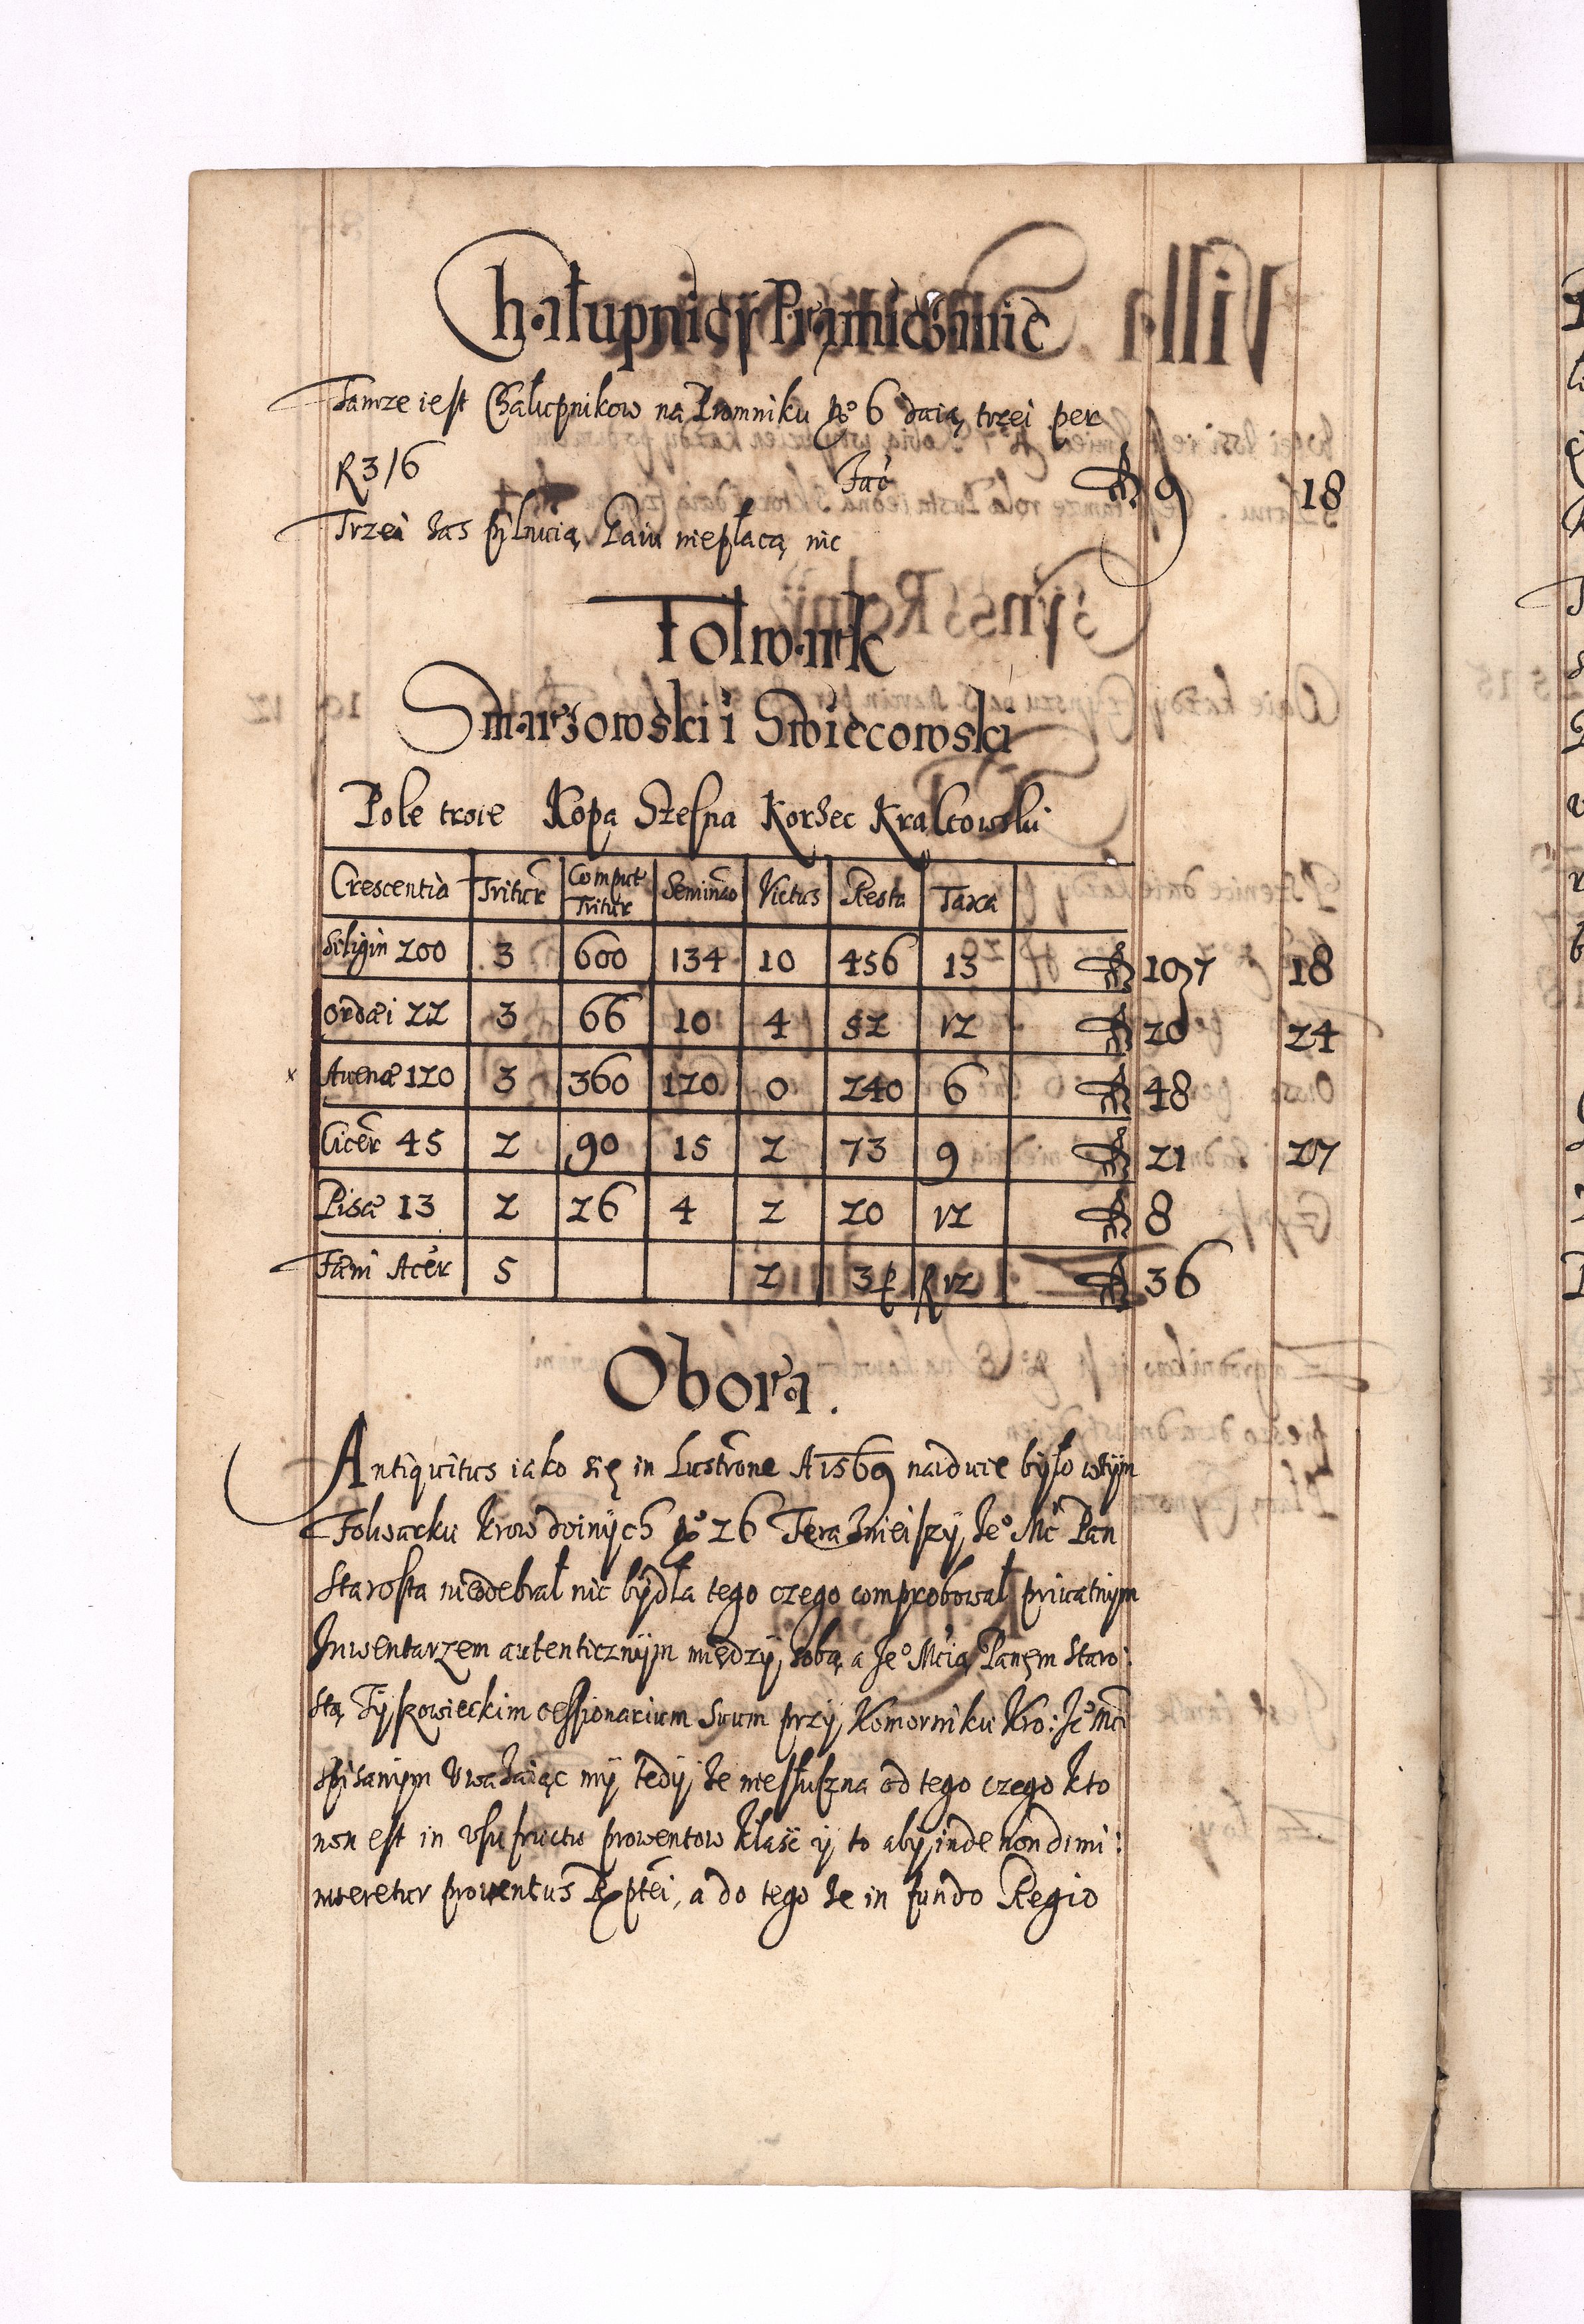 Chałupnicy Pramieniemnic
Tamze iest Chałupnikow na Promniku No 6 daią trzei per
R 3/6 Fac fl 9 18
Trzei zas pilnuią Gaiu niepłacą nic
Folwark
Smarzowski i Swiecowski
Pole troie Kopa Szesna Korzec Krakowski
Crescentia Tritur Comput Tritur Seminao Victus Resta Taxa
Siligin 200 3 600 134 10 456 13 fl 197 18
ordæi 22 3 66 10 4 52 12 fl 20 24
Auenæ 120 3 360 120 0 240 6 fl 48
Cicer 45 2 90 15 2 73 9 fl 21 27
Pisæ 13 2 26 4 2 20 12 fl 8
Fæni Acer 5 2 3 f R 12 fl 36
Obora.
Antiquitus iako się in Lustrone A 1569 naiduie było wtÿm
Folwarku krow doinÿch No 26 Teraznieiszÿ Jeo Mć Pan
Starosta nieodebrał nic bÿdła tego czego comprobował priuatnÿm
Inwentarzem autenticznÿm miedzÿ sobą a Jeo Mcią Panem Staro:
stą Tÿszowieckim cessionarium Suum przÿ Komorniku Kro: Jeo Mći
spisanÿm Uwazaiąc mÿ tedÿ ze niesłuszna od tego czego kto
non est in vsufructu prowentow kłaść ÿ to abÿ inde non dimi:
nueretur prouentus Rxptei, a do tego ze in fundo Regio